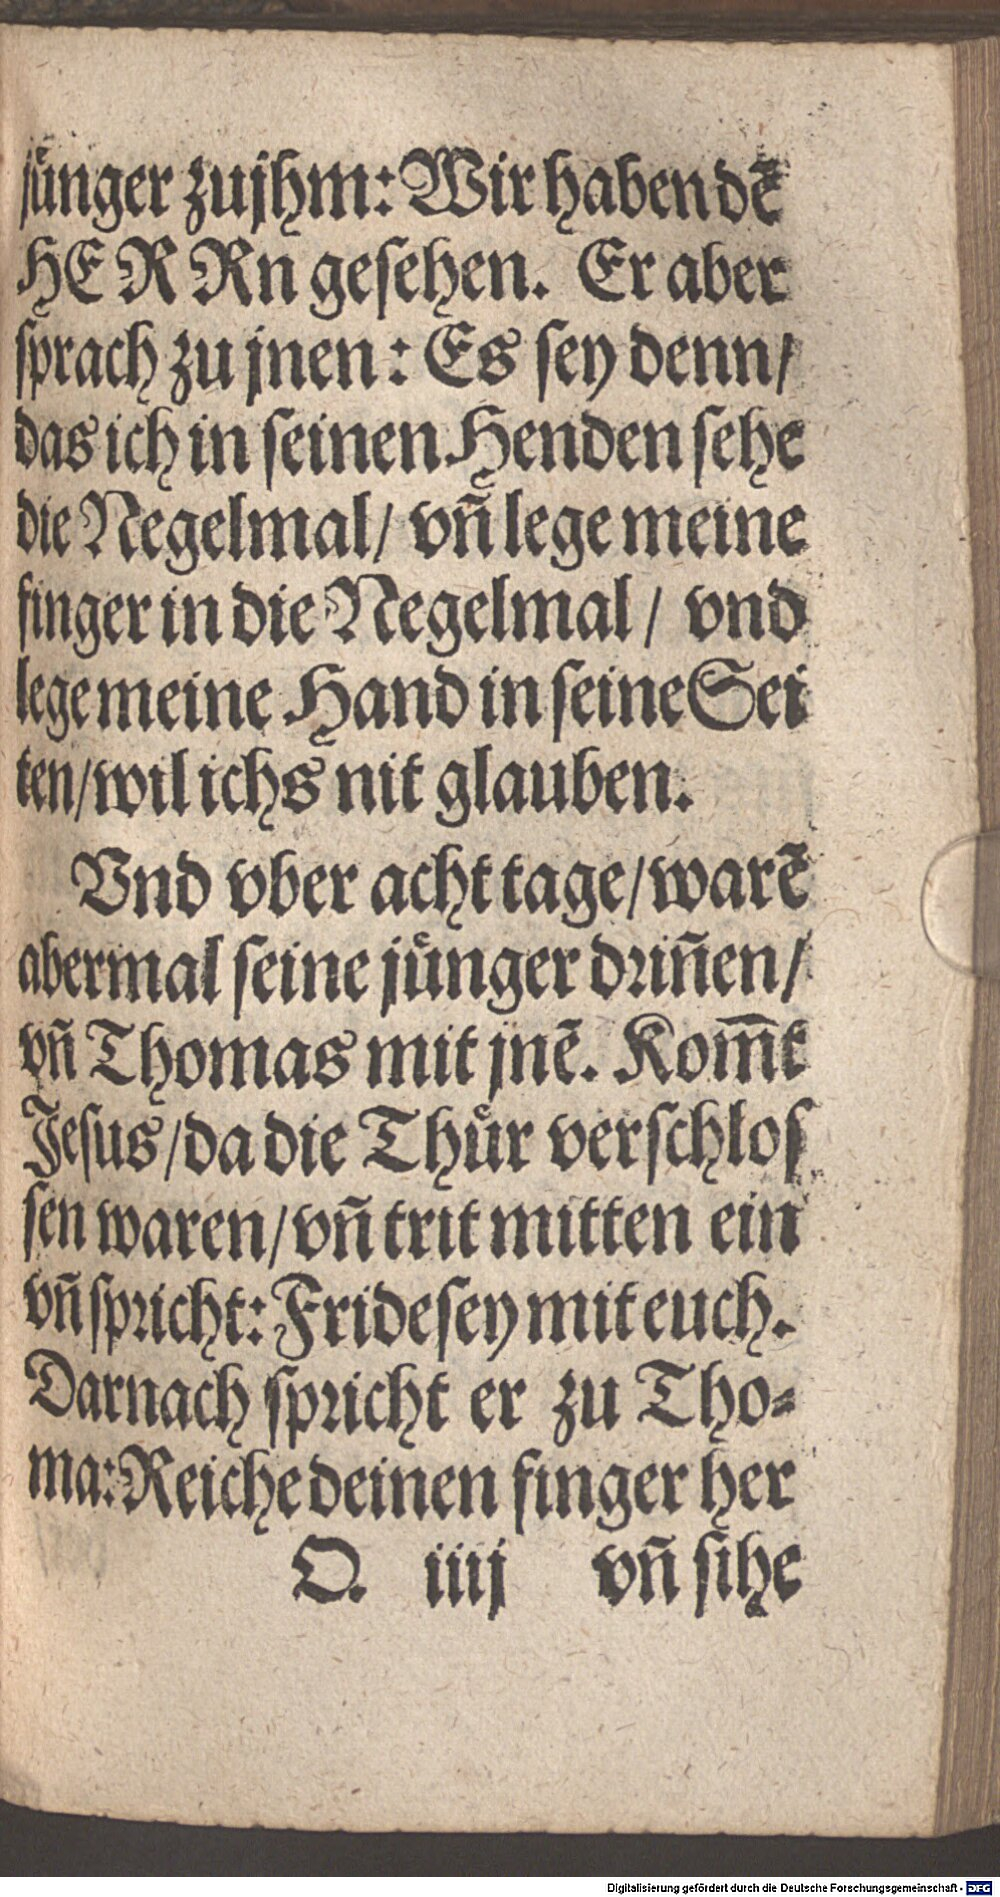 jünger zu jhm: Wir haben dẽ
HERRn gesehen. Er aber
sprach zu jnen: Es sey denn/
das ich in seinen Henden sehe
die Negelmal/ vñ lege meine
finger in die Negelmal/ vnd
lege meine Hand in seine Sei
ten/ wil ichs nit glauben.
Vnd vber acht tage/ warẽ
abermal seine jünger driñen/
vñ Thomas mit jnẽ. Kom̃t
Jesus/ da die Thür verschlos
sen waren/ vñ trit mitten ein
vñ spricht: Fride sey mit euch.
Darnach spricht er zu Tho-
ma: Reiche deinen finger her
O. iiij vñ sihe
Digitalisierung gefördert durch die Deutsche Forschungsgemeinschaft - DFG